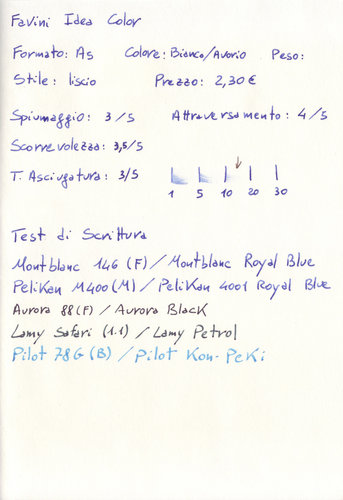 Favini Idea Color
Formato: A5 Colore: Bianco/Avorio Peso:
Stile: liscio Prezzo: 2,30 €
Spiumaggio: 3/5 Attraversamento: 4/5
Scorrevolezza: 3,5/5
T. Asciugatura: 3/5
1 5 10 20 30
Test di Scrittura
Montblanc 146 (F) / Montblanc Royal Blue
Pelikan M400 (M) / Pelikan 4001 Royal Blue
Aurora 88 (F) / Aurora Black
Lamy Safari (1.1) / Lamy Petrol
Pilot 78G (B) / Pilot Kon-Peki